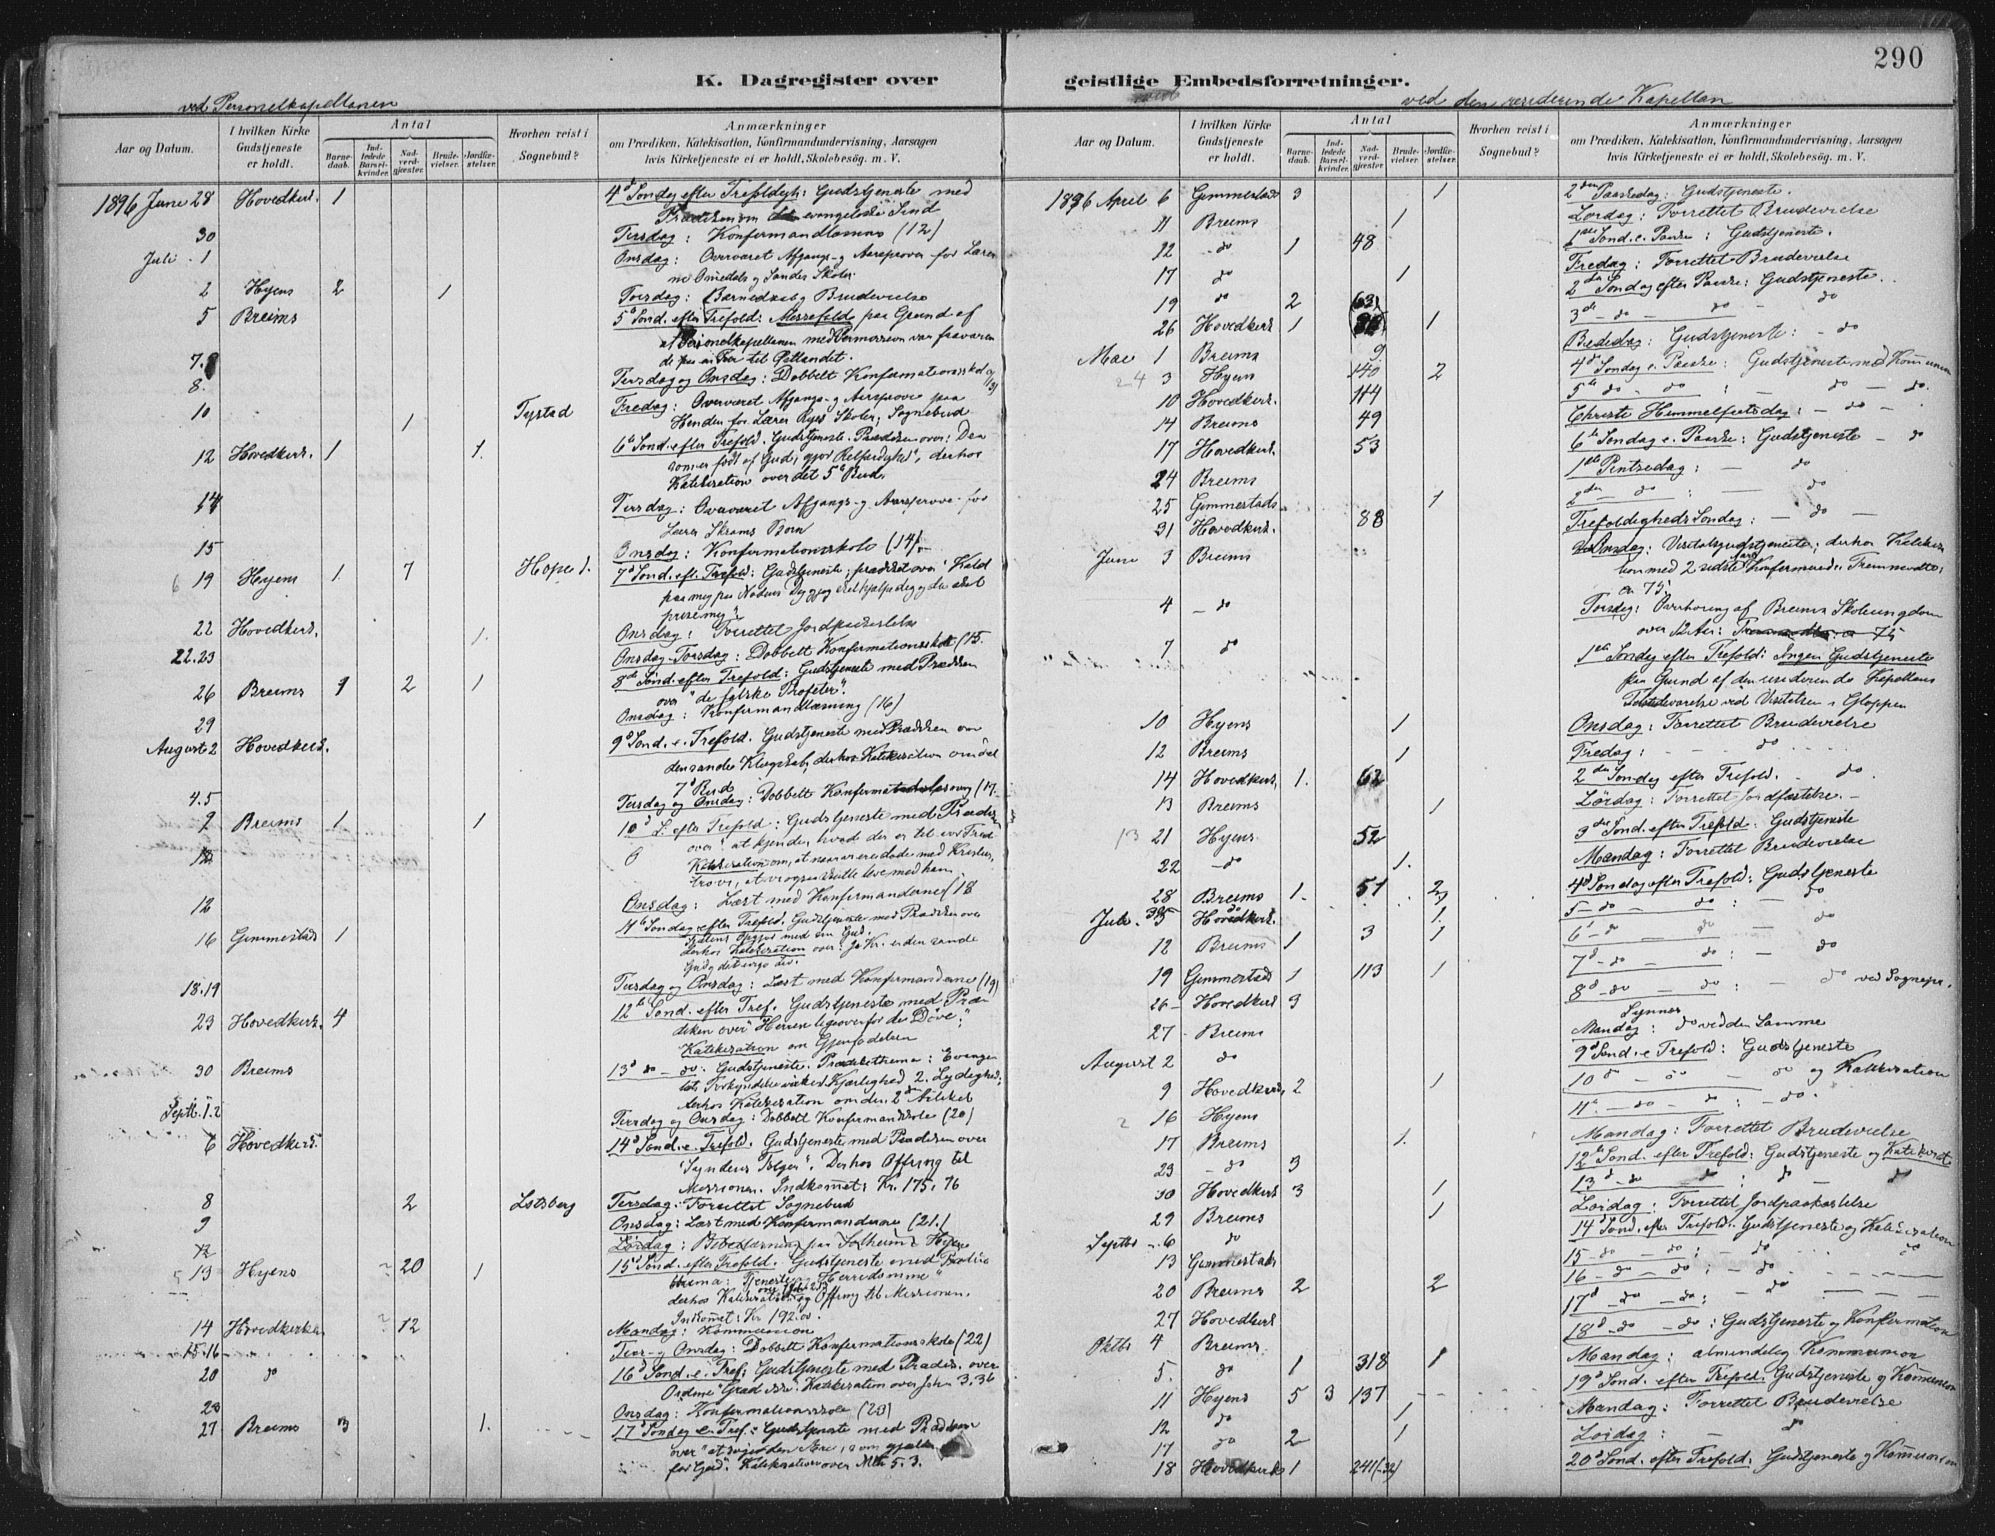 290
K. Dagregister over
geistlige Embedsforretninger.
ved Personelkapellanen
ved den residerende Kapellan
Aar og Datum.
I hvilken Kirke Gudstjeneste er holdt.
Antal
Barnedaab.
Indledede Barselkvinder.
Nadverdgjester.
Brudevielser.
Jordfæstelser.
Hvorhen reist i Sognebud?
Anmærkninger
om Prædiken, Katekisation, Konfirmandundervisning, Aarsagen
hvis Kirketjeneste ei er holdt, Skolebesøg. m. V.
1896 Juni 28 Hovedkirk. 1 4de Søndag efter Trefoldigh: Gudstjeneste med
Prædiken om evangeliske Sind
30 Tirsdag: Konfirmandlæsning (12)
Juli 1 Onsdag: Overværet Afgangs- og Aarsprøver for Lærer
Skoler.
2 Hyens 2 1 Torsdag: Barnedaab og Brudevielse
5 Breims 5te Sond. efter Trefold: Messefald paa Grund af
at Personelkapellanen med Permission var fraværen
de til Østlandet.
7.
8 Tirsdag og Onsdag: Dobbelt Konfirmationsskole
10 1 Tystad Fredag: Overværet Afgangs- og Aarsprøve paa
for Lærer Skoler; Sognebud
12 Hovedkirk. 1 1. 6te Sond. efter Trefold. Gudstjeneste. Prædiken over: Den
som er født af Gud, gjør Retfærdighed", derhos
Katekisation over det 5te Bud.
14 Tirsdag: Overværet Afgangs- og Aarsprøve for
Lærer Børn
15 Onsdag: Konfirmationsskole (14).
19 Hyens 1. 7 Hope 1. 7de Sond. eft. Trefold: Gudstjeneste; prædiket over "Kald
paa mig paa Nødens Dag
prise mig"
22 Hovedkirk. 1. Onsdag: Forrettet Jordpaakastelse
22.23 Onsdag-Torsdag: Dobbelt Konfirmationsskole (15.
26 Breims 1 2 1 8de Sønd. efter Trefold: Gudstjeneste med Prædiken
over "de falske Profeter".
29 Onsdag: Konfirmandlæsning (16)
August 2 Hovedkirk. 9de Sond. e. Trefold. Gudstjeneste med Prædiken om
den sande Klogskab, derhos Katekisation om det
7de Bud
4.5 Tirsdag og Onsdag: Dobbelt Konfirmandlæsning (17.
9 Breims 1 1 10de S. efter Trefold: Gudstjeneste med Prædiken
over "at kjende, hvad der er til vor Fred
Katekisation om, at naar vi ere døde med Kristus,
tro vi, at vi ogsaa skulle leve med ham
12 Onsdag: Læst med Konfirmanderne (18
16 Gimmestad 1 11te Søndag efter Trefold. Gudstjeneste med Prædiken over
med sin Gud.
derhos Katekisation over: Js. Kr. er den sande
Gud og det evige Liv.
18.19 Tirsdag og Onsdag: Læst med Konfirmanderne (19)
23 Hovedkirk. 4 12te Sond. efter Tref. Gudstjeneste med Præ
diken over "Herren ligeoverfor den Døve";
Katekisation om Gjenfødelsen
30 Breims 13de do - do. Gudstjeneste. Prædikethema: Evange
liets Forkyndelse virker Kjærlighed 2. Lydighed;
derhos Katekisation om den 2den Artikel
Septb. 1.2 Tirsdag og Onsdag: Dobbelt Konfirmandskole (20)
6 Hovedkirk. 14de Sond. e. Trefold. Gudstjeneste med Prædiken over
"Syndens Følger". Derhos Offring til
Missionen. Indkommet: Kr. 175,76
8 2 Lotsberg Tirsdag: Forrettet Sognebud
9 Onsdag: Læst med Konfirmanderne (21.)
12 Lørdag: Bibellæsning paa Solheim i Hyen
13 Hyens 20 1 15de Sond. efter Trefold. Gudstjeneste med Prædike
thema: Tjenesten Herredømme"
derhos Katekisation og Offring til Missionen.
Indkommet: Kr 192.00.
14 Hovedkirken 12 Mandag: Kommunion
15.16 Tirs- og Onsdag: Dobbelt Konfirmationsskole (22)
20 do 16de Sond. e. Tref: Gudstjeneste med Prædik. over
Ordene "Græd ikke". Katekisation over Joh. 3.36
23 Onsdag: Konfirmationsskole (23)
27 Breims 3 1. 17de Søndag e. Tref.: Gudstjeneste med Prædiken
over "at søge den Ære, som gjælder
for Gud". Katekisation over Mth 5.3.
Aar og Datum.
I hvilken Kirke Gudstjeneste er holdt.
Antal
Barnedaab.
Indledede Barselkvinder.
Nadverdgjester.
Brudevielser.
Jordfæstelser.
Hvorhen reist i Sognebud?
Anmærkninger
om Prædiken, Katekisation, Konfirmandundervisning, Aarsagen
hvis Kirketjeneste ei er holdt, Skolebesøg. m. V.
1896 April 6 Gimmestads 3 1 2den Paaskedag: Gudstjeneste.
11 Breims 1 Lørdag: Forrettet Brudevielse
12 do 1 48 1ste Sond. e. Paaske: Gudstjeneste.
17 do 1 Fredag: Forrettet Brudevielse
19 do 2 63 2den Søndag efter Paaske: Gudstjeneste.
26 Hovedkirk 1 1 3die do - do - do
Mai 1 Breims 9 Bededag: Gudstjeneste: - do
3 Hyens 140 2 4de Søndag e. Paaske: Gudstjeneste med Kommunion
10 Hovedkirk. 114 5te do - do : do - do.
14 Breims 49 Christi Himmelfartsdag: - do -
17 Hovedkirk. 53 6te Søndag e. Paaske: Gudstjeneste - do
24 Breims 1ste Pintsedag: - do
25 Gimmestads 1 2den do : - do
31 Hovedkirk. 88 Trefoldigheds Søndag: - do -
Juni 3 Breims Onsdag: Visitatsgudstjeneste; derhos Katekisa
tion med 2 sidste Aars Konfirmerede. Fremmødte:
ca 75.
4 do Torsdag: Overhøring af Breims Skoleungdom
over 12 Aar: 75
7 do 1ste Søndag efter Trefold: Ingen Gudstjeneste
paa Grund af den residerende Kapellans
Tilstedeværelse ved Visitatsen i Gloppen
10 Hyens 1 Onsdag: Forrettet Brudevielse
12 Breims 1 Fredag: - do
14 Hovedkirk. 1. 62 2den Søndag efter Trefold. - do.
13 Breims 1 Lørdag: Forrettet Jordfæstelse.
21 Hyens 52 3die Sond. efter Trefold. Gudstjeneste
22 do 1. Mandag: Forrettet Brudevielse
28 Breims 1. 51 2 4de Søndag efter Trefold: Gudstjeneste
Juli 5 Hovedkirk. 1. 5 - do - do : - do
12 Breims 1 3 1 6te - do - do - do
19 Gimmestad 1 113 1 7de - do - do: - do
26 Hovedkirk 3 8de - do - do: - do ved Sognepr.
Synnes
27 Breims Mandag: do ved den Samme
August 2 do 9de Sond. e. Trefold: Gudstjeneste
9 Hovedkirk. 2 1 10de - do - do og Katekisation
16 Hyens 11te - do - do : - do.
17 Breims 1. Mandag: Forrettet Brudevielse
23 do 3 12te Sond. efter Trefold: Gudstjeneste og Katekisat.
30 Hovedkirk 3 1 13de - do - do : do - do
29 Breims 1 Lørdag: Forrettet Jordpaakastelse
Septbr. 6 do 14de Sond. efter Trefold. Gudstjeneste og Katekisation
13 Gimmestads 15 - do - do : - do - do
20 Breims 2 2 16 - do - do : - do
27 Hovedkirk 17de - do - do : - do
Oktbr 4 Breims 18de - do - do : Gudstjeneste og Konfirmation
5. do 1 318 1 Mandag: almindelig Kommunion
11 Hyens 5 3 137 19de Sond. efter Trefold. Gudstjeneste og Kommunion
12 do 1 Mandag: Forrettet Brudevielse
17 do 2 1 Lørdag: - do
18 Hovedkirk 1 241(-32) 20de Sond. efter Trefold: Gudstjeneste og Kommunion